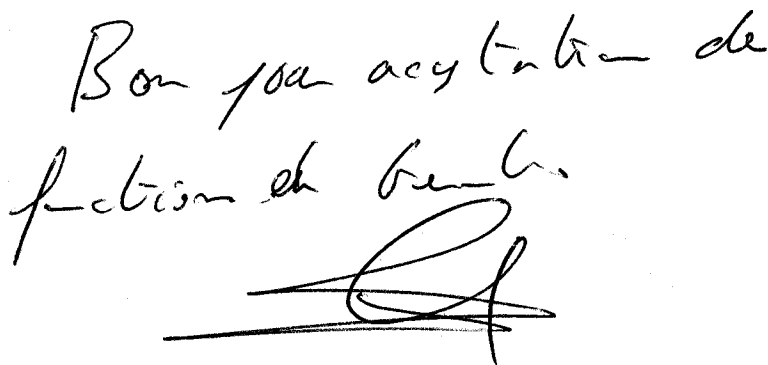 Bon pour acceptation de
fonction de Gérant.